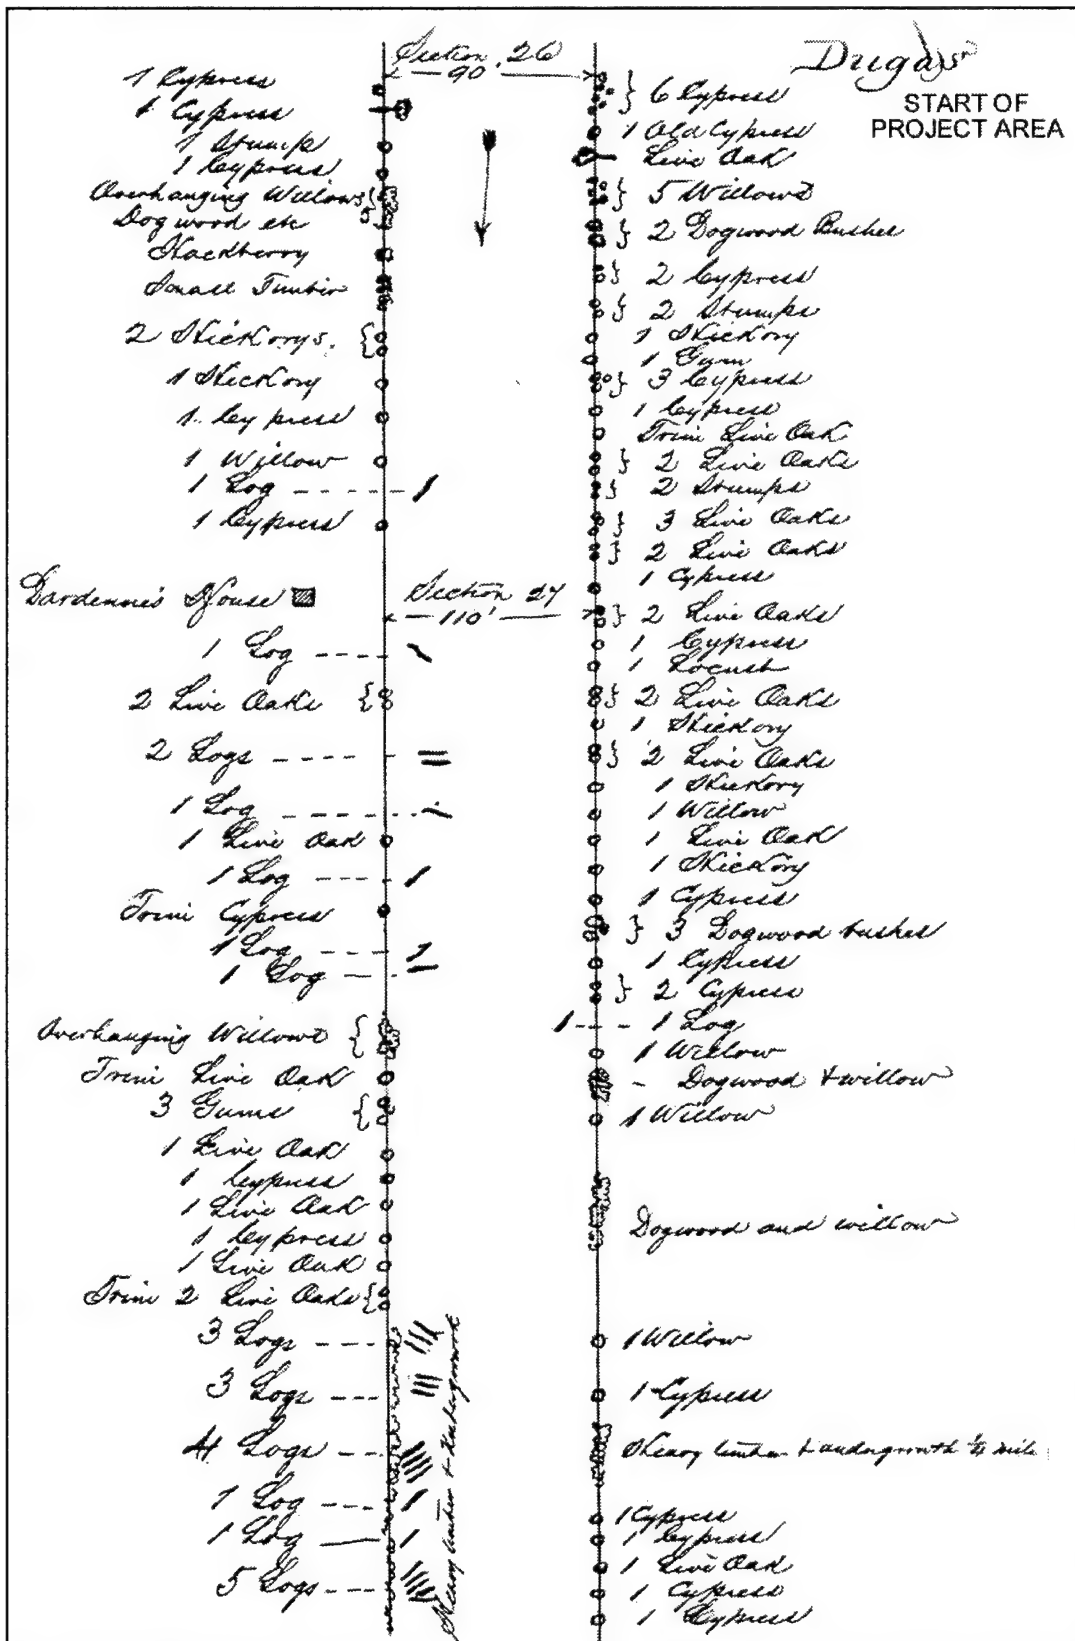 Section 26
90
Dugas
START OF
PROJECT AREA
1 Cypress
1 Cypress
1 Stump
1 Cypress
Overhanging Willows
Dogwood etc
Hackberry
Small Timber
2 Hickorys.
1 Hickory
1 Cypress
1 Willow
1 Log
1 Cypress
Dardenne's House
1 Log
2 Live Oaks
2 Logs
1 Log
1 Live Oak
1 Log
Trim Cypress
1 Log
1 Log
Overhanging Willows
Trim Live Oak
3 Gums
1 Live Oak
1 Cypress
1 Live Oak
1 Cypress
1 Live Oak
Trim 2 Live Oaks
3 Logs
3 Logs
4 Logs
1 Log
1 Log
5 Logs
Section 27
110'
Heavy timber & Undergrowth
6 Cypress
1 Old Cypress
Live Oak
5 Willows
2 Dogwood Bushes
2 Cypress
2 Stumps
1 Hickory
1 Gum
3 Cypress
1 Cypress
Trim Live Oak
2 Live Oaks
2 Stumps
3 Live Oaks
2 Live Oaks
1 Cypress
2 Live Oaks
1 Cypress
1 Locust
2 Live Oaks
1 Hickory
2 Live Oaks
1 Hickory
1 Willow
1 Live Oak
1 Hickory
1 Cypress
3 Dogwood bushes
1 Cypress
2 Cypress
1 Log
1 Willow
Dogwood & willow
1 Willow
Dogwood and willow
1 Willow
1 Cypress
Heavy timber & undergrowth mile
1 Cypress
1 Cypress
1 Live Oak
1 Cypress
1 Cypress